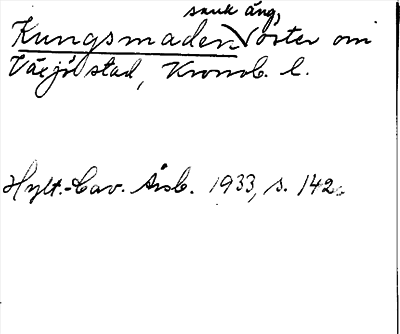 sank äng,
Kungsmaden öster om
Växjö stad, Kronob. l.
Hylt.-Cav. Årsb. 1933, s. 142.